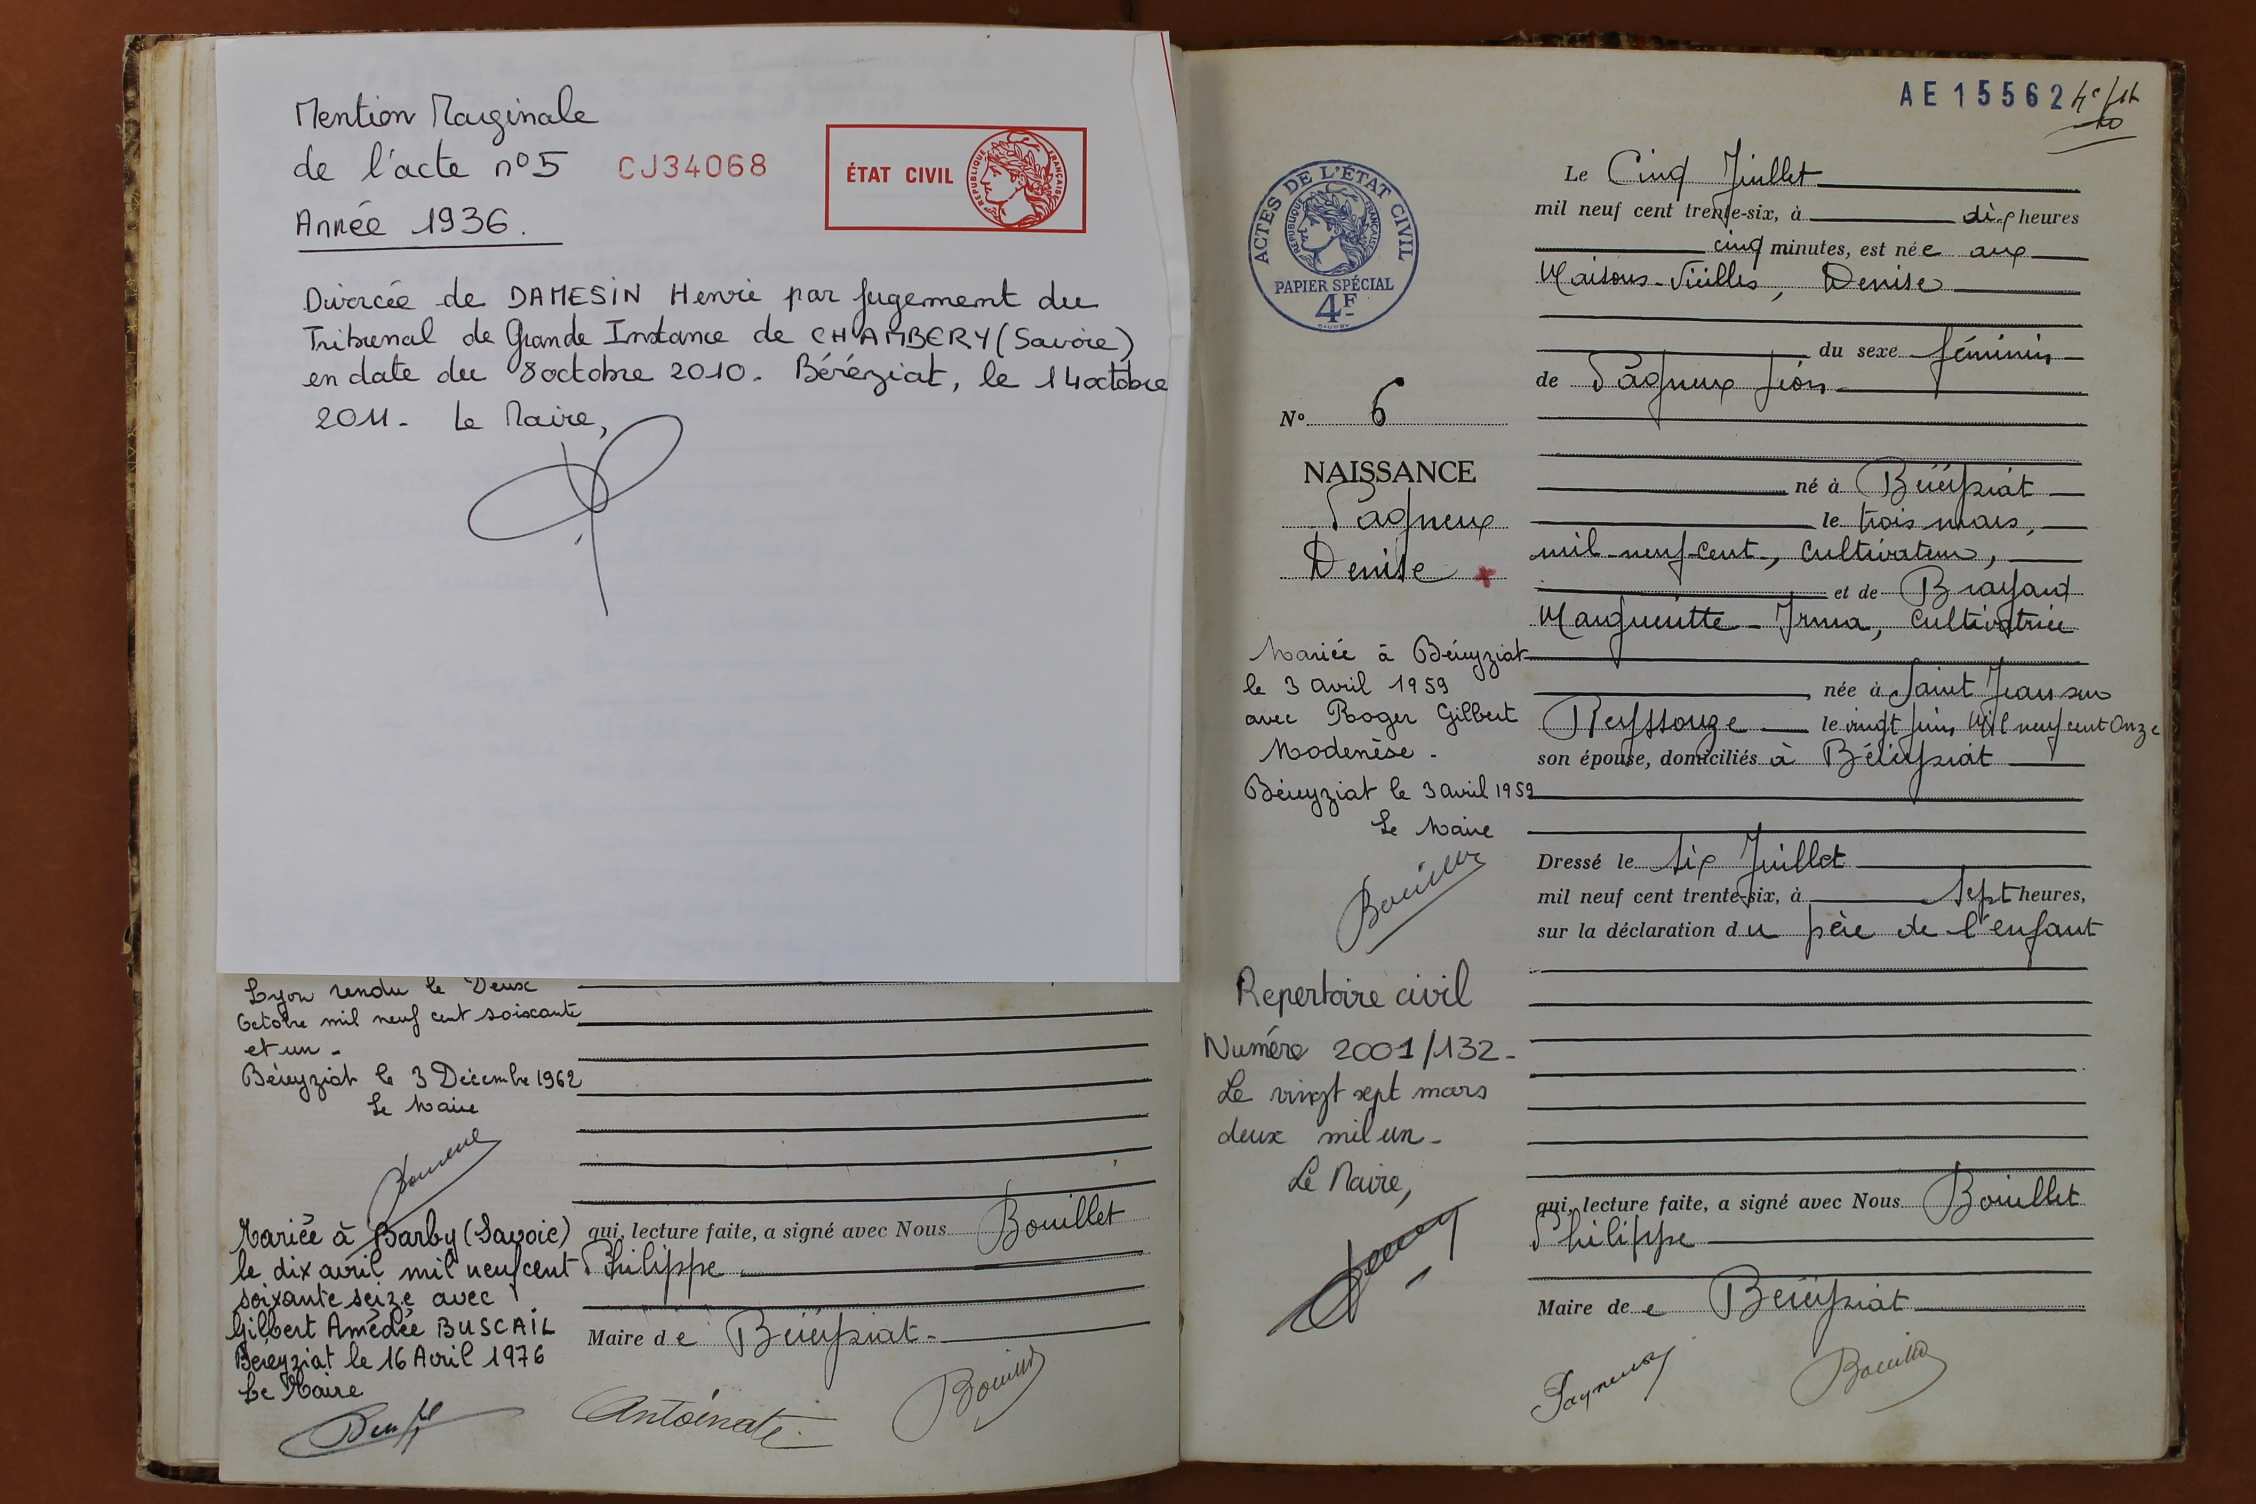 Mention Marginale
de l'acte n°5 CJ34068
Année 1936.
ÉTAT CIVIL
RÉPUBLIQUE FRANÇAISE
Divorcée de DAMESIN Henri par jugement du
Tribunal de Grande Instance de CHAMBERY (Savoie)
en date du 8 octobre 2010. Béréziat, le 14 octobre
2011. Le Maire,
Lyon rendu le Deux
Octobre mil neuf cent soixante
et un.
Béreyziat le 3 Décembre 1962
Le Maire
Mariée à Barby (Savoie)
le dix avril mil neuf cent
soixante seize avec
Gilbert Amédée BUSCAIL
Bereyziat le 16 Avril 1976
Le Maire
qui, lecture faite, a signé avec Nous Bouillet
Philippe
Maire de Béréyziat
Antoinate
Bouillet
AE15562
ACTES DE L'ÉTAT CIVIL
RÉPUBLIQUE FRANÇAISE
PAPIER SPÉCIAL
4F
N° 6
NAISSANCE
Pagneux
Denise
Mariée à Béreyziat
le 3 avril 1959
avec Roger Gilbert
Modenèse.
Béreyziat le 3 avril 1959
Le Maire
Bouillet
Repertoire civil
Numéro 2001/132.
Le vingt sept mars
deux mil un.
Le Maire,
Le Cinq Juillet
mil neuf cent trente-six, à dix heures
cinq minutes, est née aux
Maisons-Vieilles, Denise
du sexe féminin
de Pagneux Léon
né à Béréyziat
le trois mars,
mil-neuf-cent, cultivateur,
et de Brayard
Margueritte-Irma, cultivatrice
née à Saint Jean sur
Reyssouze le vingt juin Mil neuf cent Onze
son épouse, domiciliés à Béréyziat
Dressé le six Juillet
mil neuf cent trente-six, à sept heures,
sur la déclaration du père de l'enfant
qui, lecture faite, a signé avec Nous Bouillet
Philippe
Maire de e Béréyziat
Pagneux
Bouillet